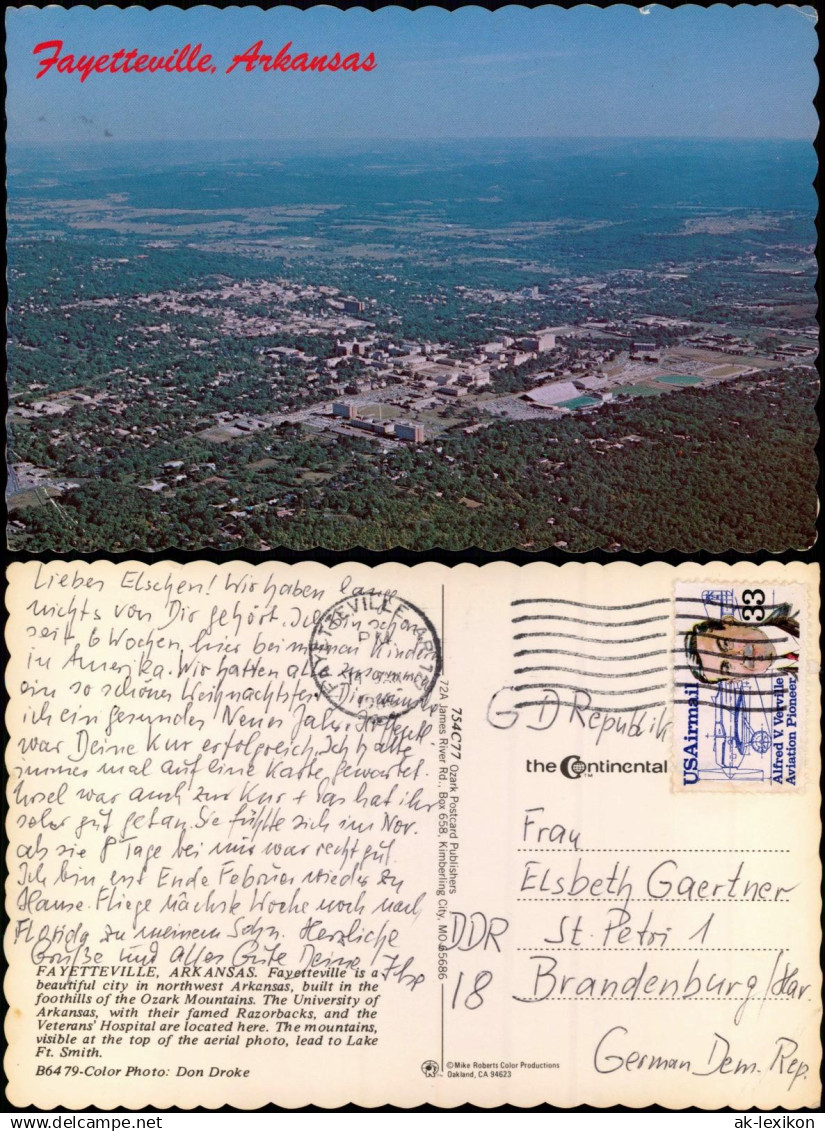 Fayetteville, Arkansas
Lieber Elschen! Wir haben lang
nichts von Dir gehört. Ich bin schon
seit 6 Wochen hier bei meinen Kindern
in Amerika. Wir hatten alle zusammen
ein so schönes Weihnachtsfest. Dir wünsche
ich ein gesundes Neues Jahr. Hoffentl.
war Deine Kur erfolgreich. Ich hatte
immer mal auf eine Karte gewartet.
war auch zur Kur + das hat ihr
sehr gut getan. Sie fühlte sich im Nov.
als sie 8 Tage bei mir war recht gut.
Ich bin erst Ende Februar wieder zu
Hause. Fliege nächste Woche noch nach
Florida zu meinem Sohn. Herzliche
Grüße und alles Gute Deine Ilse
FAYETTEVILLE, ARKANSAS. Fayetteville is a
beautiful city in northwest Arkansas, built in the
foothills of the Ozark Mountains. The University of
Arkansas, with their famed Razorbacks, and the
Veterans' Hospital are located here. The mountains,
visible at the top of the aerial photo, lead to Lake
Ft. Smith.
B6479-Color Photo: Don Droke
FAYETTEVILLE
PM
754C77 Ozark Postcard Publishers
72A James River Rd., Box 658, Kimberling City, MO 65686
33
USAirmail
Alfred V. Verville
Aviation Pioneer
GDRepublik
the Continental
TM
Frau
Elsbeth Gaertner
DDR St. Petri 1
18 Brandenburg/Hav.
German Dem. Rep.
© Mike Roberts Color Productions
Oakland, CA 94623
ak-lexikon
www.delcampe.net